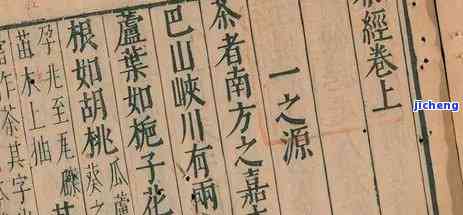 經卷上
一之源
茶者南方之嘉
巴山峽川有兩
蘆葉如梔子花
根如胡桃
瓜蘆
葵之
孕兆至尾礫其
苗木上抽
當作茶其字
jicheng